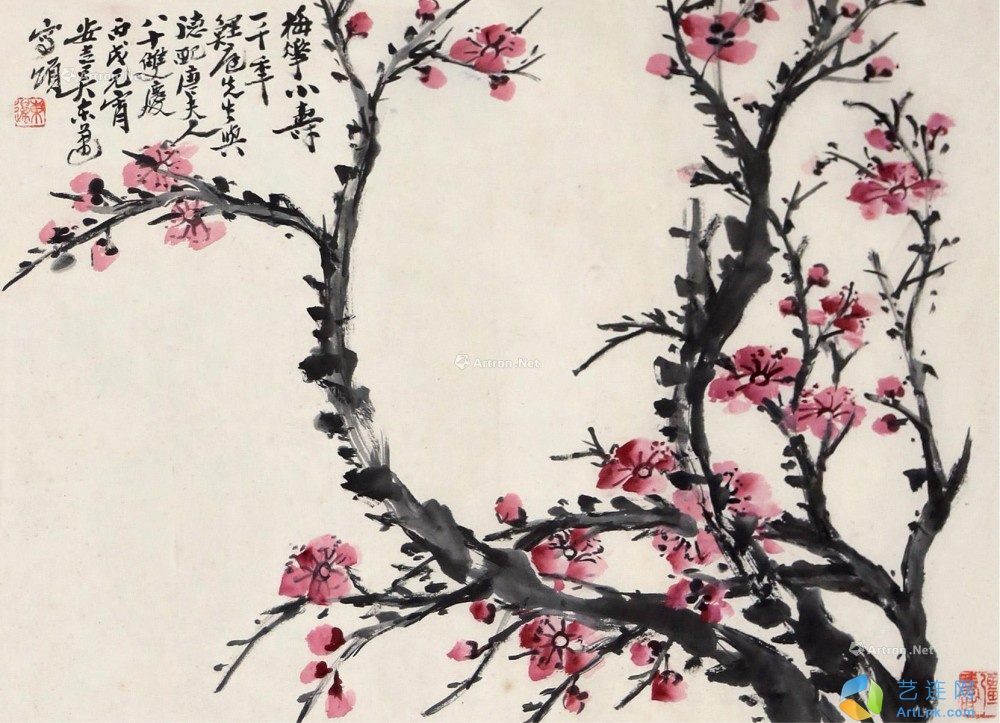 梅華小壽
一千年
鋞厂先生與
德配唐夫人
八十雙慶
丙戌元宵
安吉吴东邁
寫頌
Artron.Net
Artron.Net
艺连网
ArtLnk.com